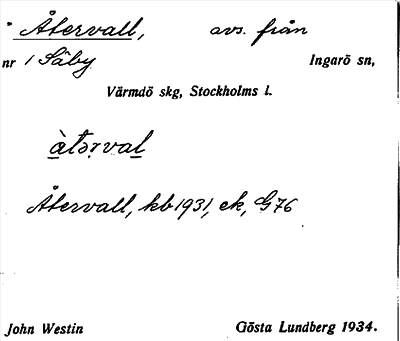 Återvall, avs. från
nr 1 Säby Ingarö sn,
Värmdö skg, Stockholms l.
àtərval
Återvall, kb 1931, ek, G76
John Westin Gösta Lundberg 1934.